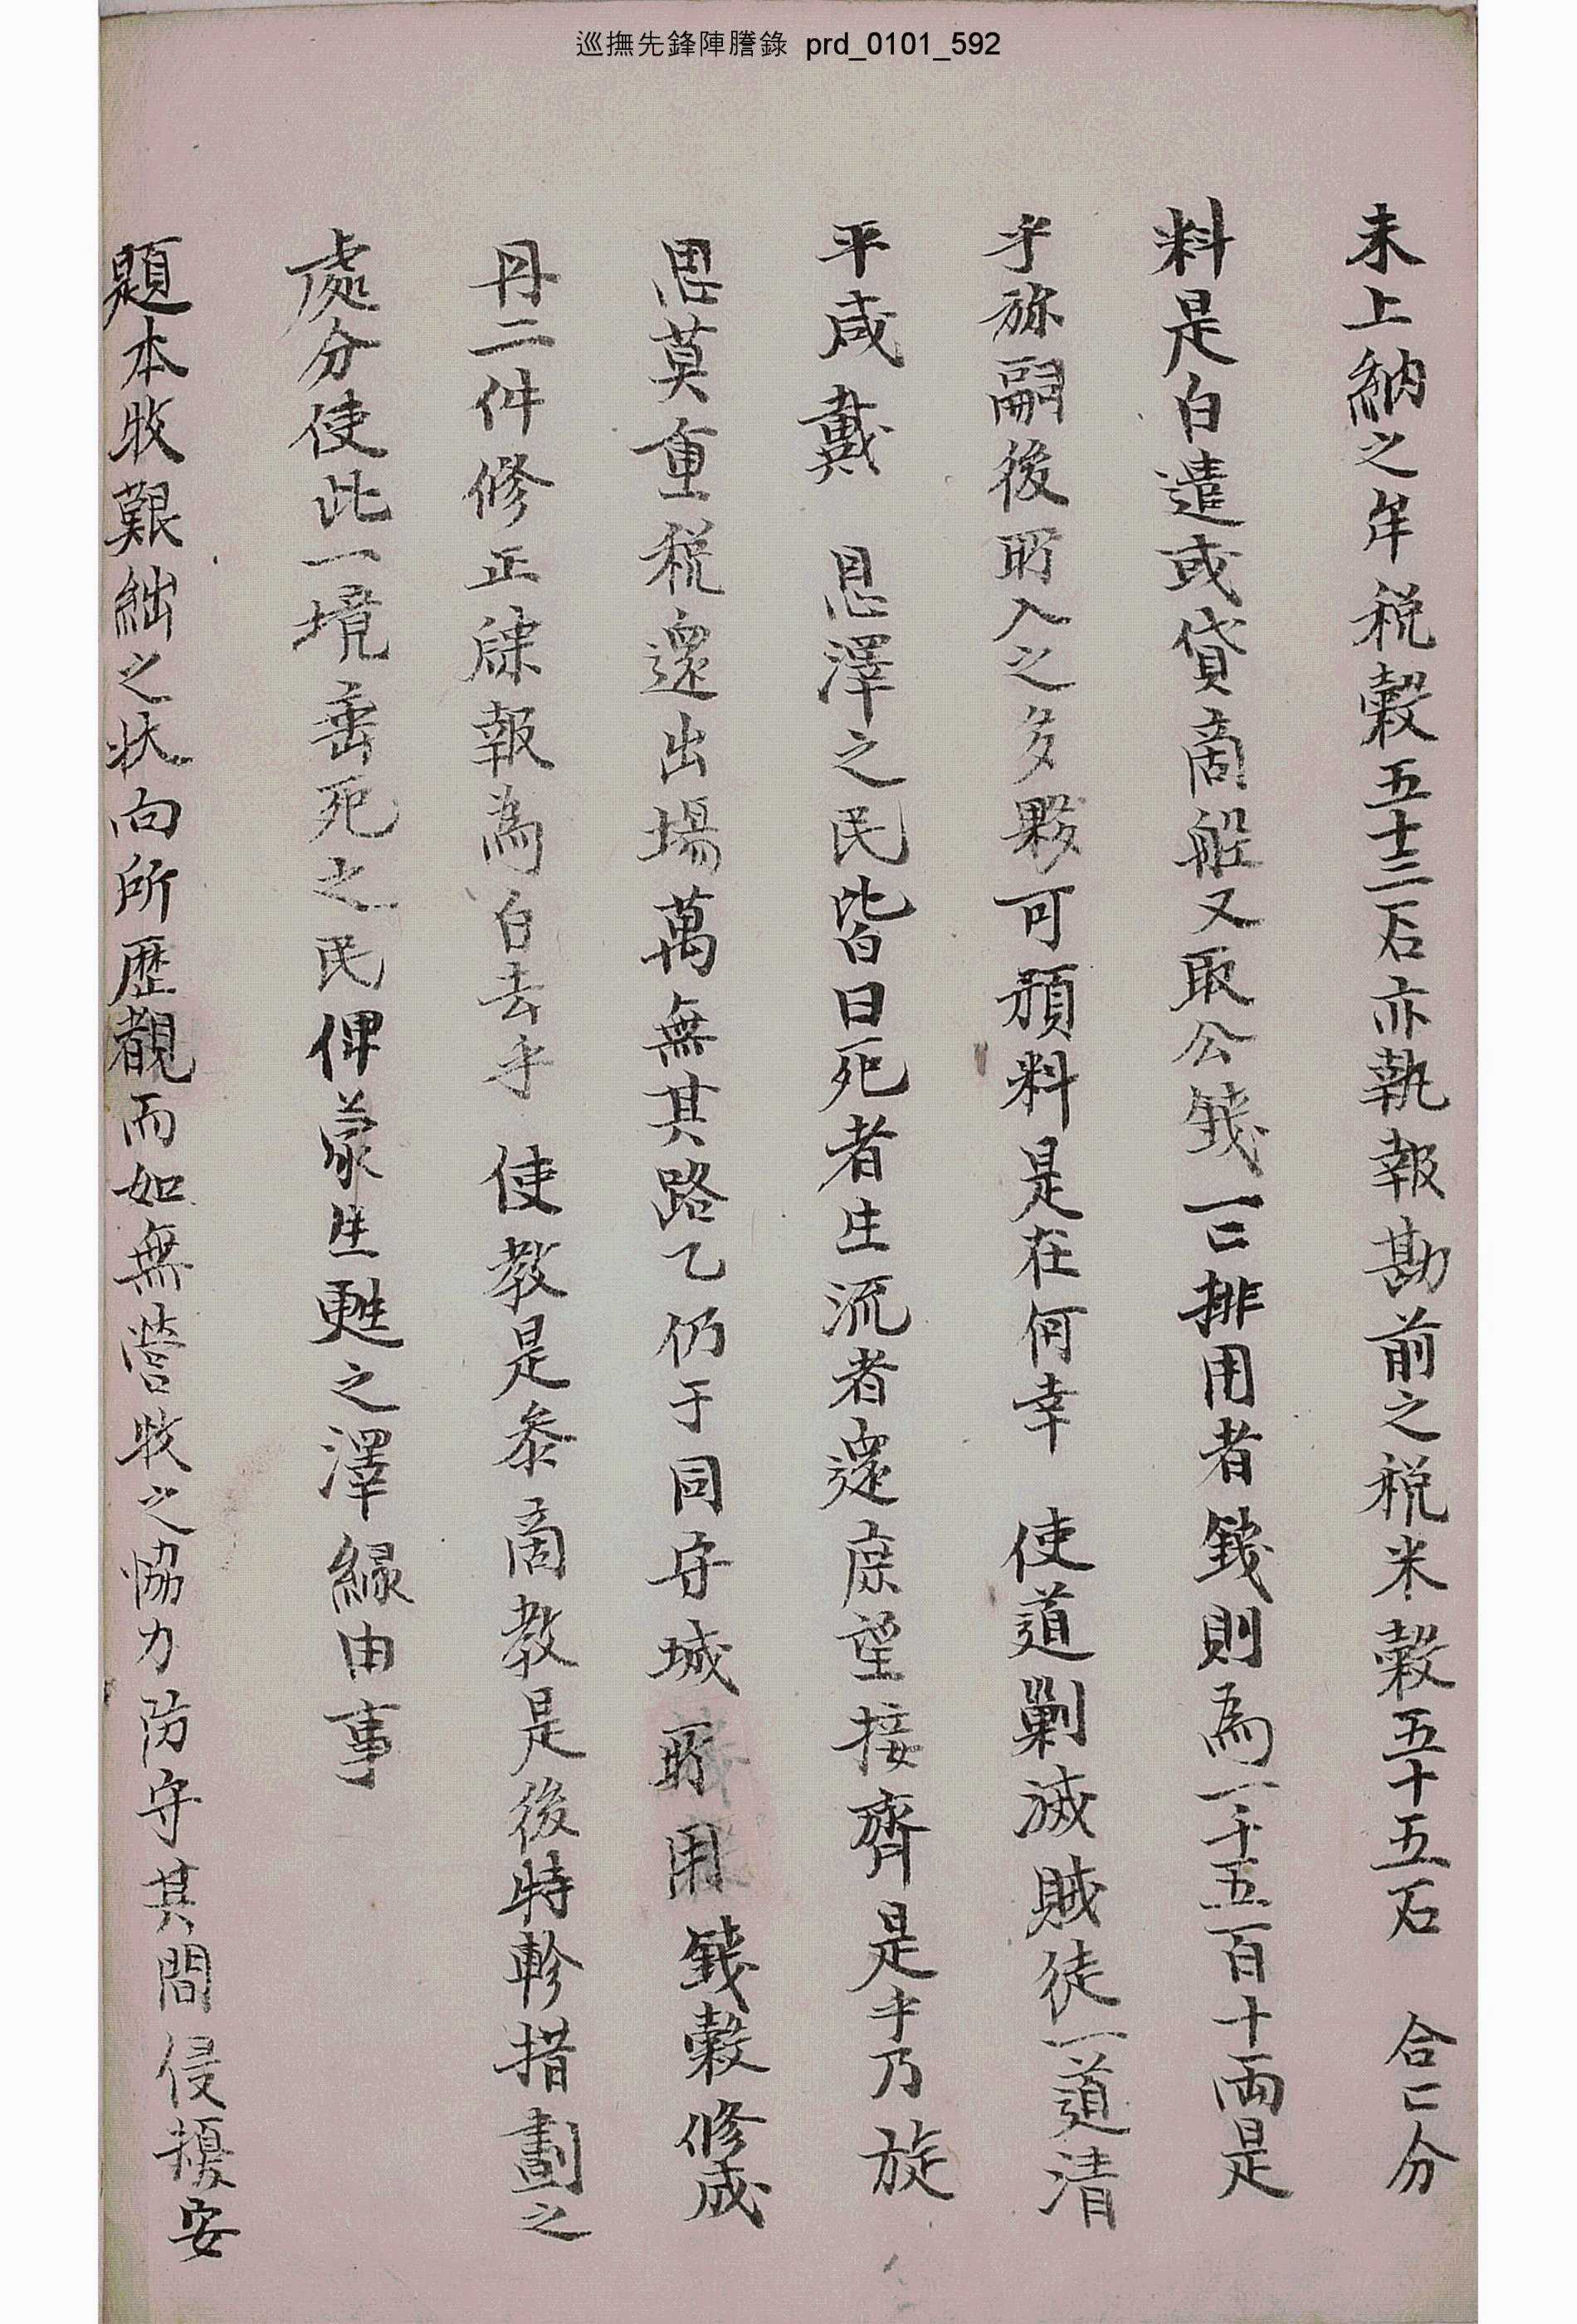 巡撫先鋒陣謄錄 prd_0101_592
未上納之牟稅穀五十三石亦執報勘前之稅米穀五十五石 合二分
料是白遣或貸商船又取公錢一二排用者錢則為一千五百十兩是
乎旀嗣後所入之多夥可預料是在何幸 使道剿滅賊徒一道淸
平咸戴 恩澤之民皆曰死者生流者還庶望接齊是乎乃旋
思莫重稅還出場萬無其路乙仍于同守城所用錢穀修成
丹二件修正牒報為白去乎 使敎是參商敎是後特軫措劃之
處分使此一境垂死之民俾蒙生甦之澤緣由事
題本收艱絀之狀向所歷覩而如無營牧之協力防守其間侵擾安